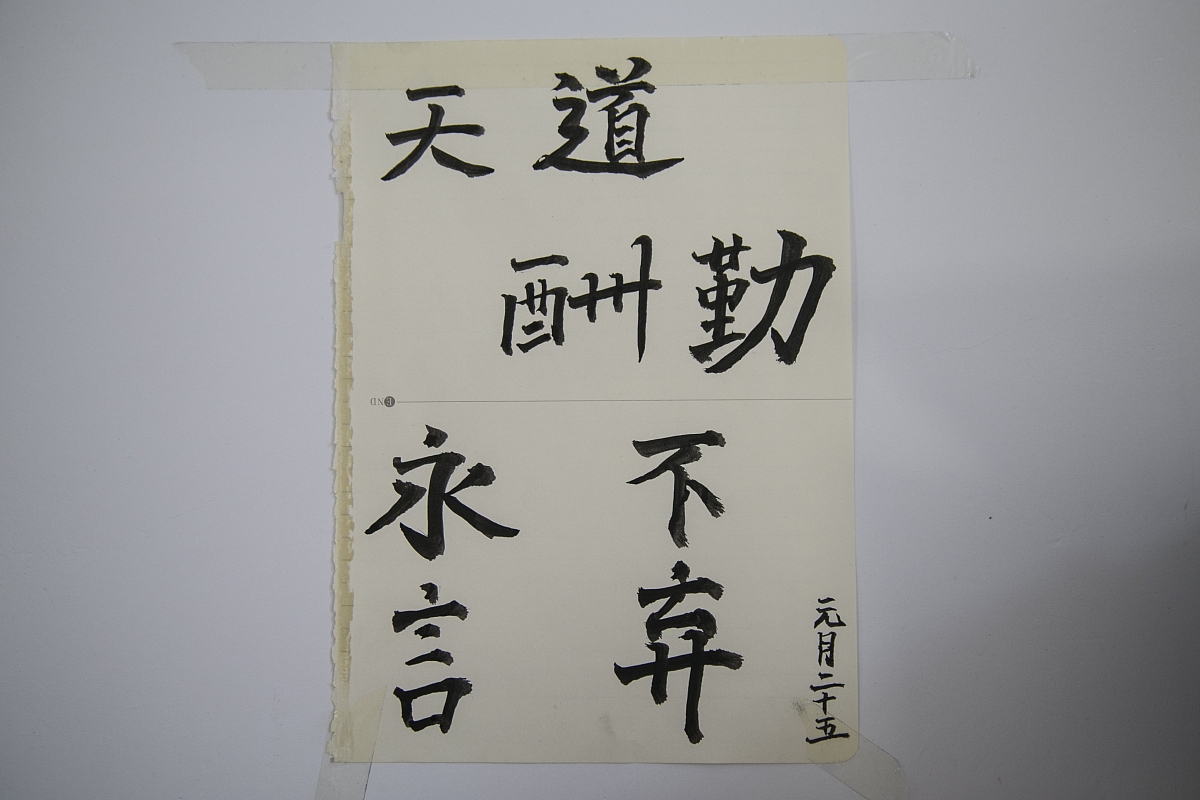 天道
酬勤
END
永不
言弃
元月二十五